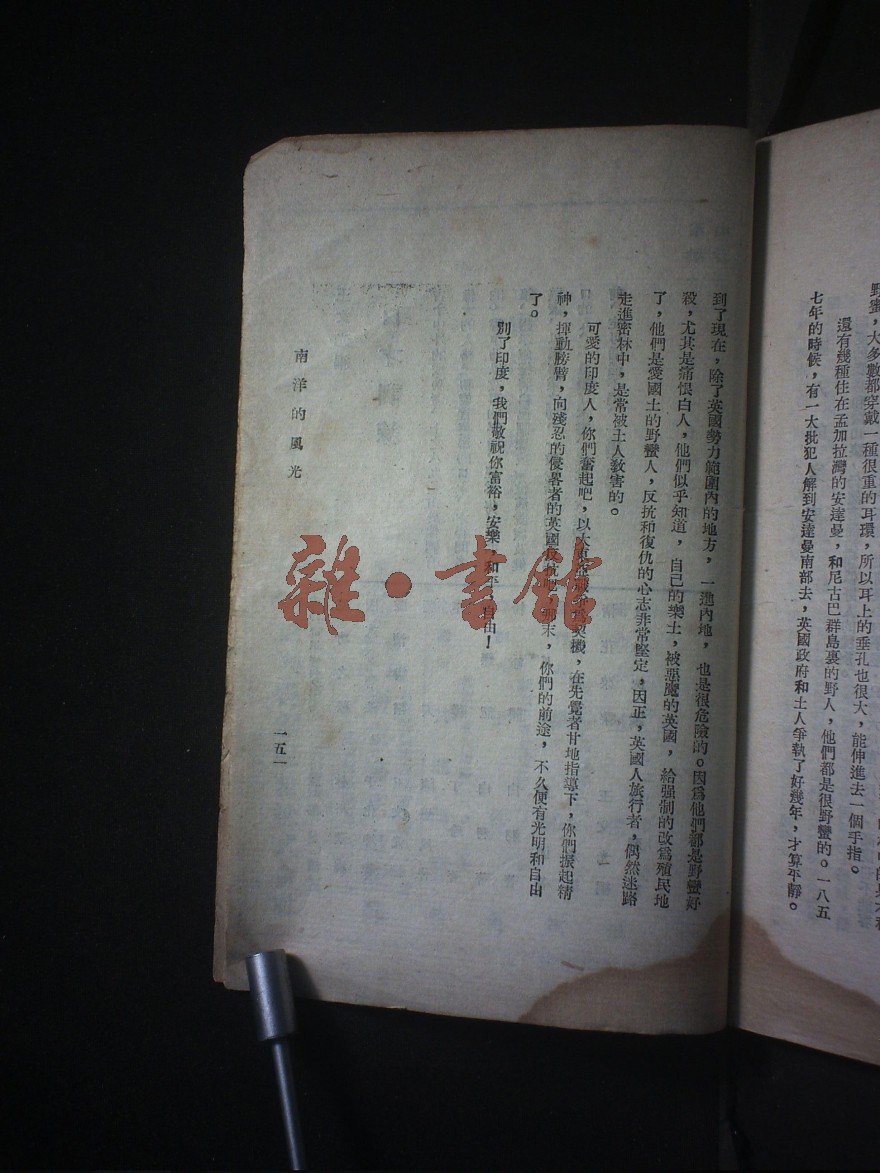 野蜜，大多數都穿戴一種很重的耳環，所以耳上的垂孔也很大，能伸進去一個手指。
還有幾種住在孟加拉灣的安達曼，和尼古巴群島裏的野人，他們都是很野蠻的。一八五
七年的時候，有一大批犯人解到安達曼南部去，英國政府和土人爭執了好幾年，才算平靜。
到了現在，除了英國勢力範圍內的地方，一進內地，也是很危險的。因爲他們都是野蠻好
殺，尤其是痛恨白人，他們似乎知道，自己的樂土，被惡魔的英國，給强制的改爲殖民地
了，他們是愛國土的野蠻人，反抗和復仇的心志非常堅定，因正，英國人旅行者，偶然迷路
走進密林中，是常被土人敎害的。
可愛的印度人，你們奮起吧，以大東亞戰爭爲契機，在先覺者甘地指導下，你們振起精
神，揮動膀臂，向殘忍的侵畧者的英國反抗們，那末，你們的前途，不久便有光明和自由
了。
別了印度，我們敬祝你富裕，安樂，和平，自由！
南洋的風光
一五一
雜·書館